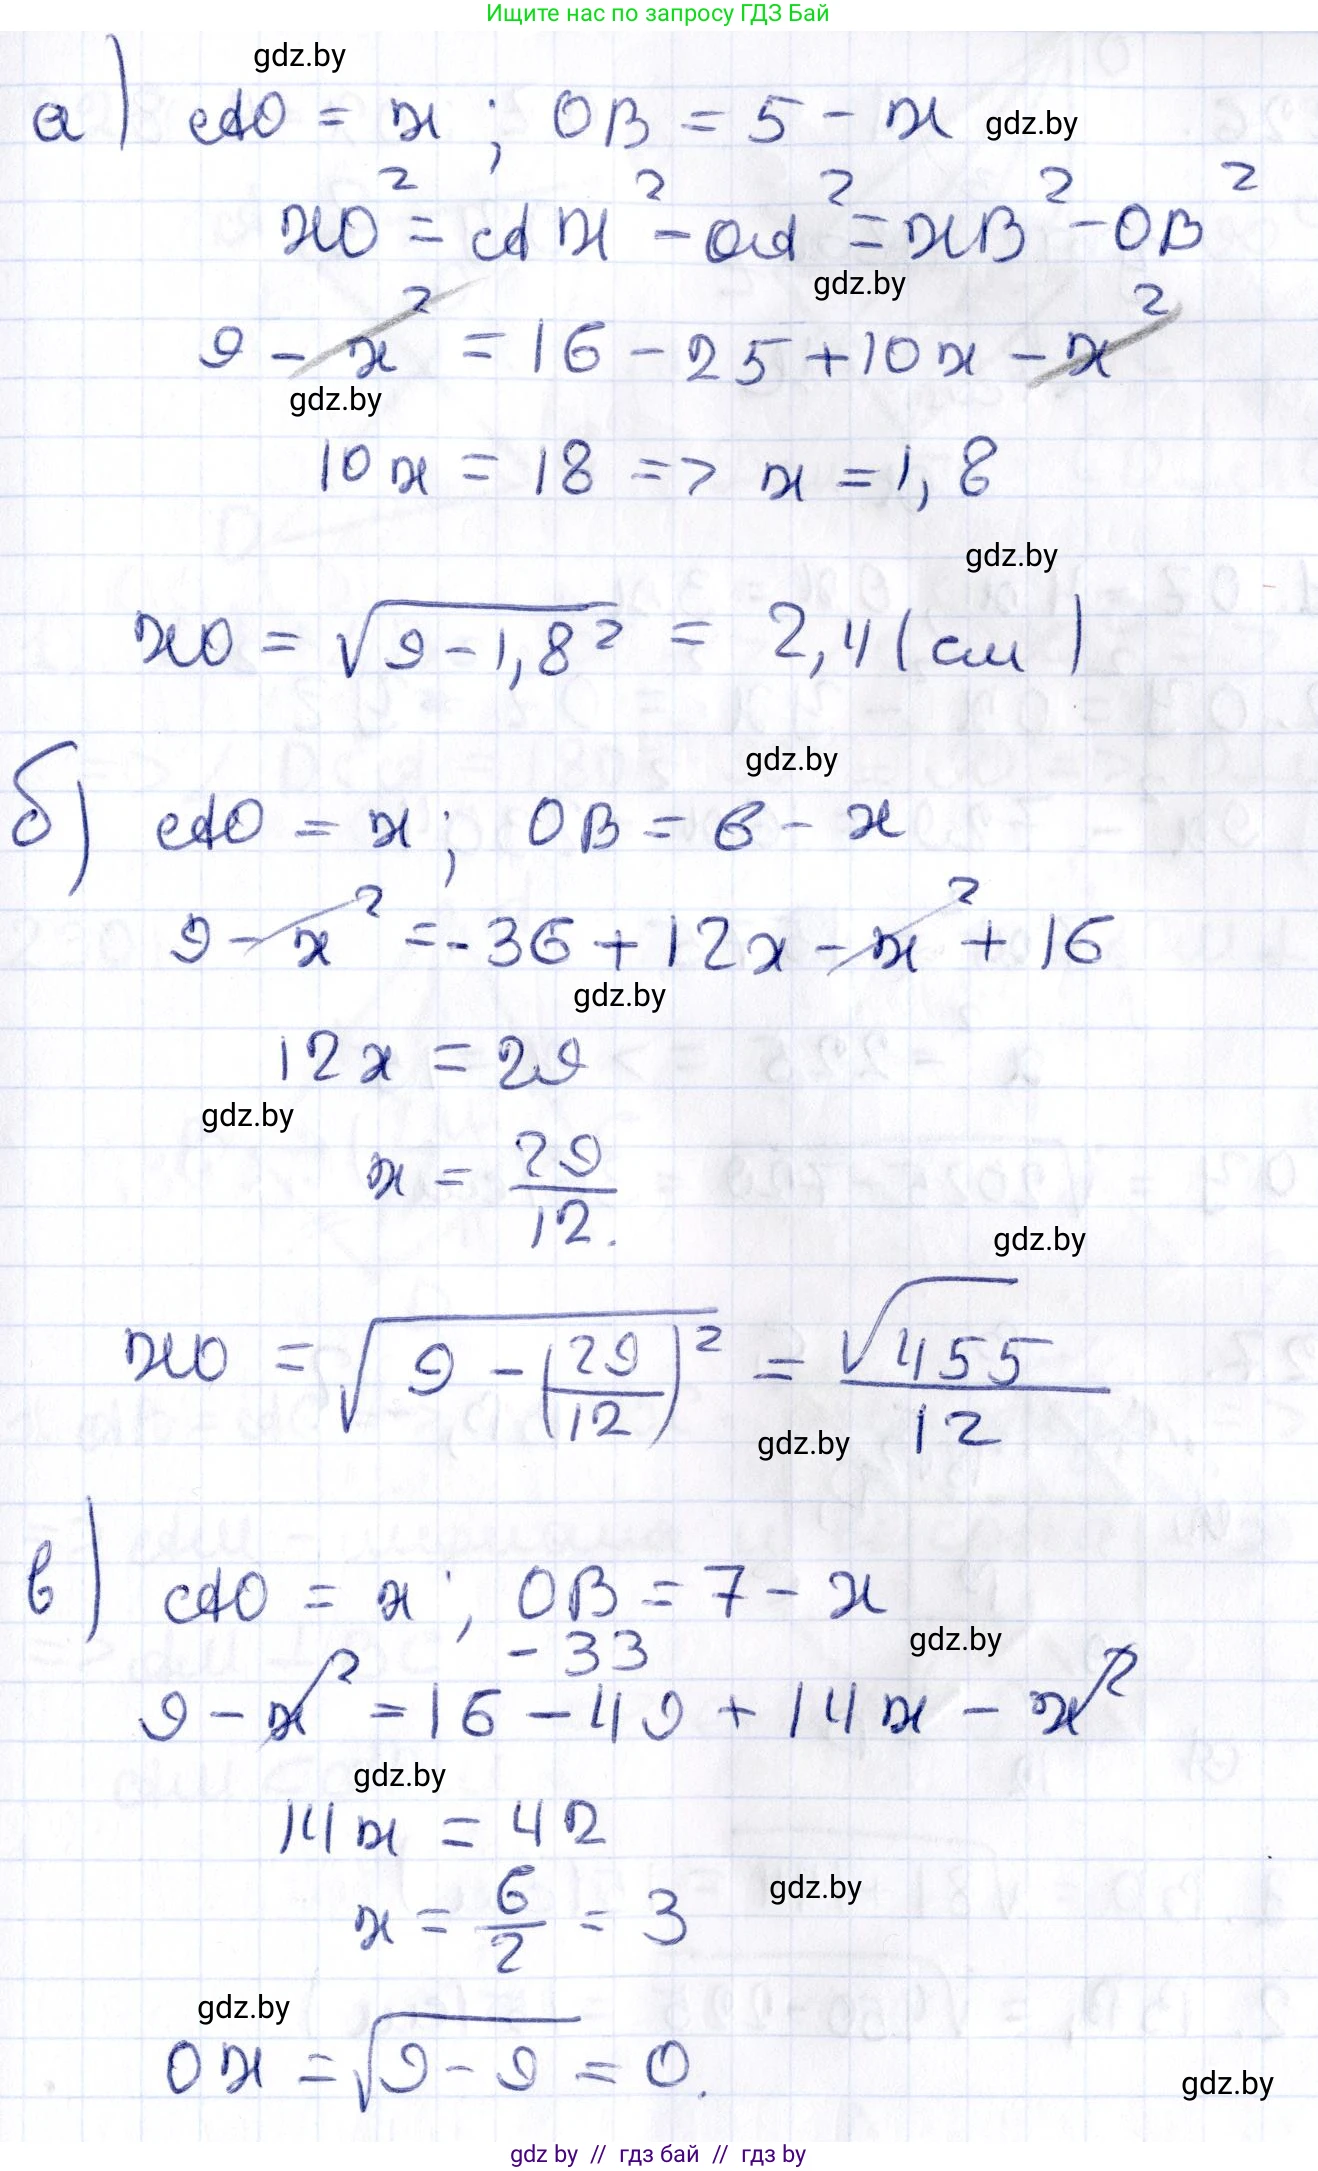 Ищите нас по запросу ГДЗ Бай
gdz.by
а) AO = x ; OB = 5 - x
gdz.by
XO² = AX² - OA² = XB² - OB²
gdz.by
9 - x² = 16 - 25 + 10x - x²
gdz.by
10x = 18 => x = 1,8
gdz.by
XO = √(9 - 1,8²) = 2,4 (см)
gdz.by
б) AO = x ; OB = 6 - x
9 - x² = -36 + 12x - x² + 16
gdz.by
12x = 29
gdz.by
x = 29/12.
gdz.by
XO = √(9 - (29/12)²) = √455/12
gdz.by
в) AO = x ; OB = 7 - x
-33
gdz.by
9 - x² = 16 - 49 + 14x - x²
gdz.by
14x = 42
x = 6/2 = 3
gdz.by
gdz.by
OX = √(9 - 9) = 0.
gdz.by
gdz by // гдз бай // гдз by